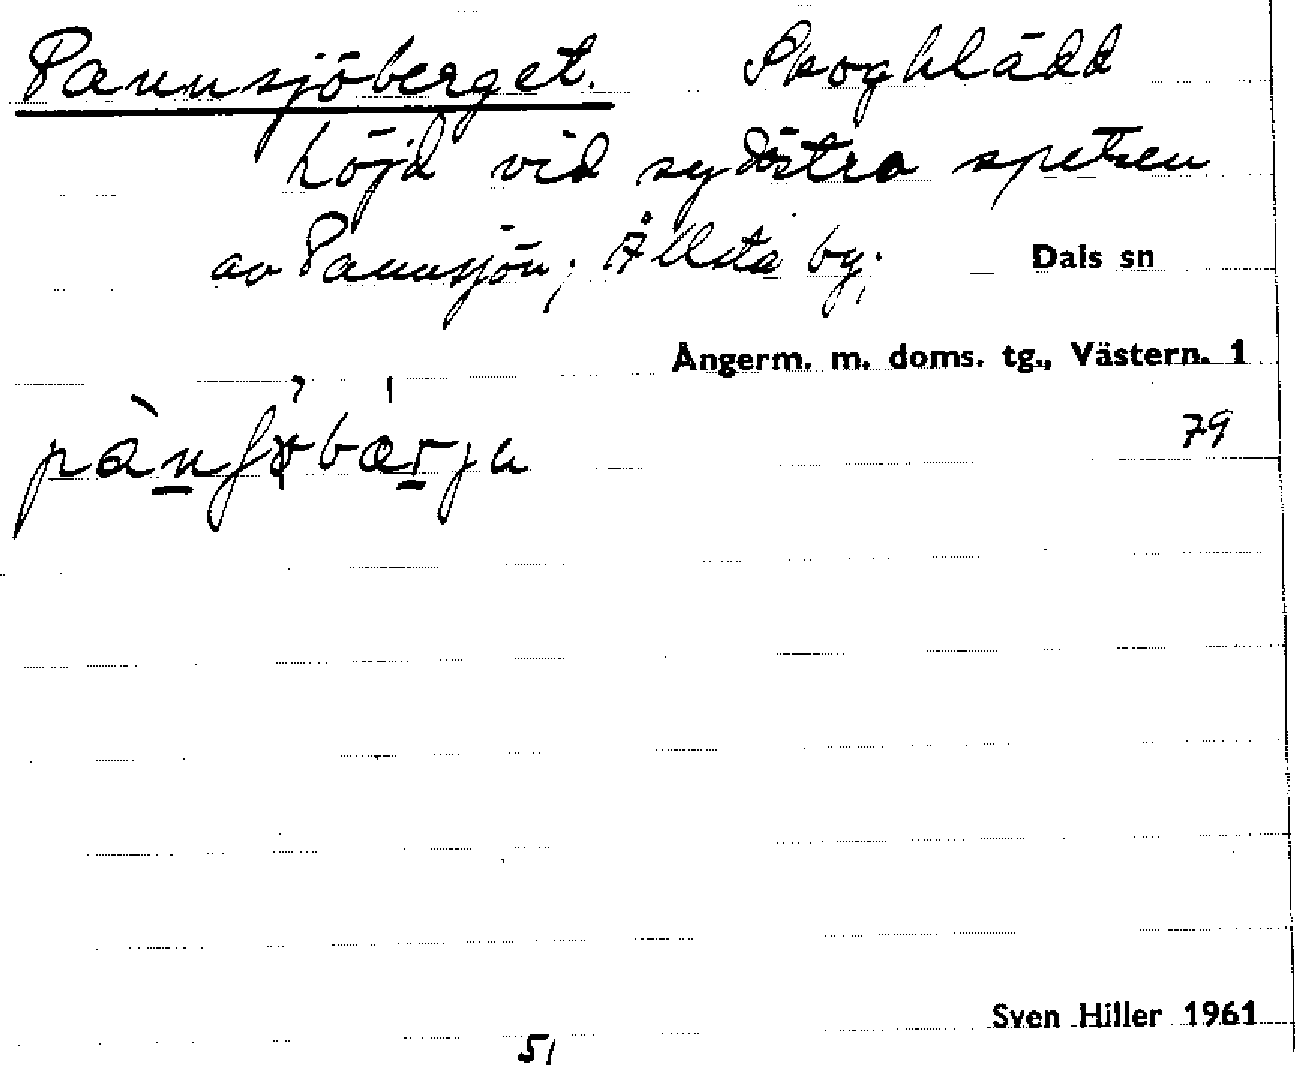 Pannsjöberget. Skogklädd
höjd vid sydöstra spetsen
av Pannsjön; Ållsta by;
Dals sn
Ångerm. m. doms. tg., Västern. 1
79
Sven Hiller 1961
51